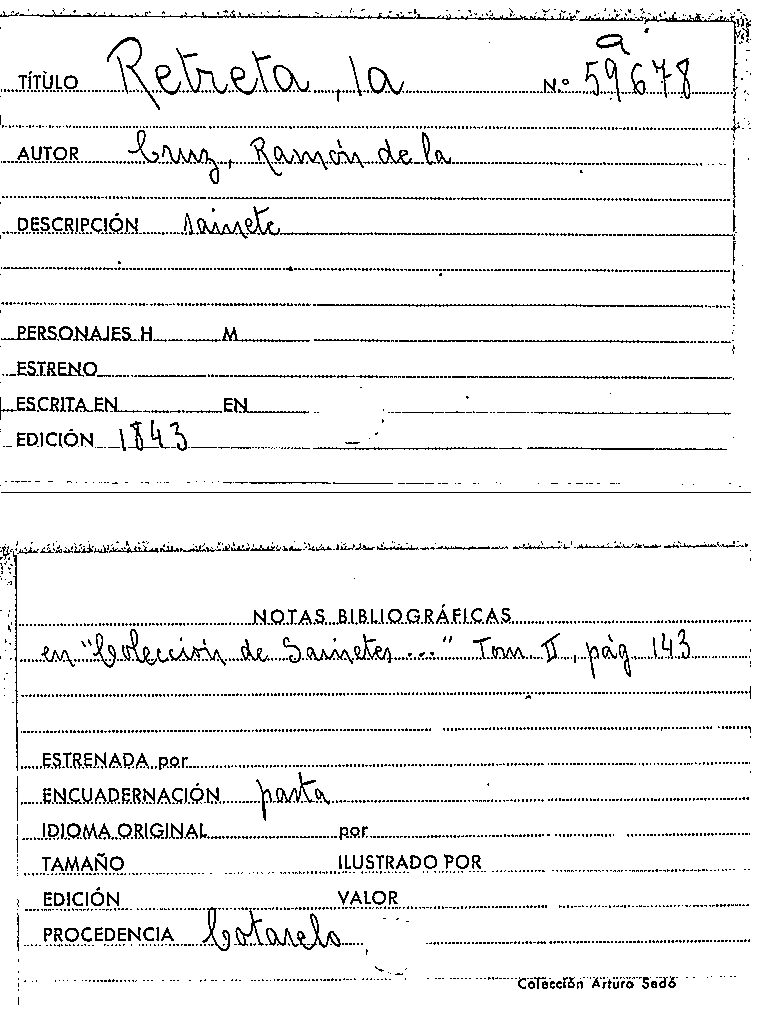 a
TÍTULO Retreta, la N.º 59678
AUTOR Cruz, Ramón de la
DESCRIPCIÓN sainete
PERSONAJES H M
ESTRENO
ESCRITA EN EN
EDICIÓN 1843
NOTAS BIBLIOGRÁFICAS
en "Colección de Sainetes..." Tom II, pág 143
ESTRENADA por
ENCUADERNACIÓN pasta
IDIOMA ORIGINAL por
TAMAÑO ILUSTRADO POR
EDICIÓN VALOR
PROCEDENCIA Cotarelo
Colección Arturo Sedó